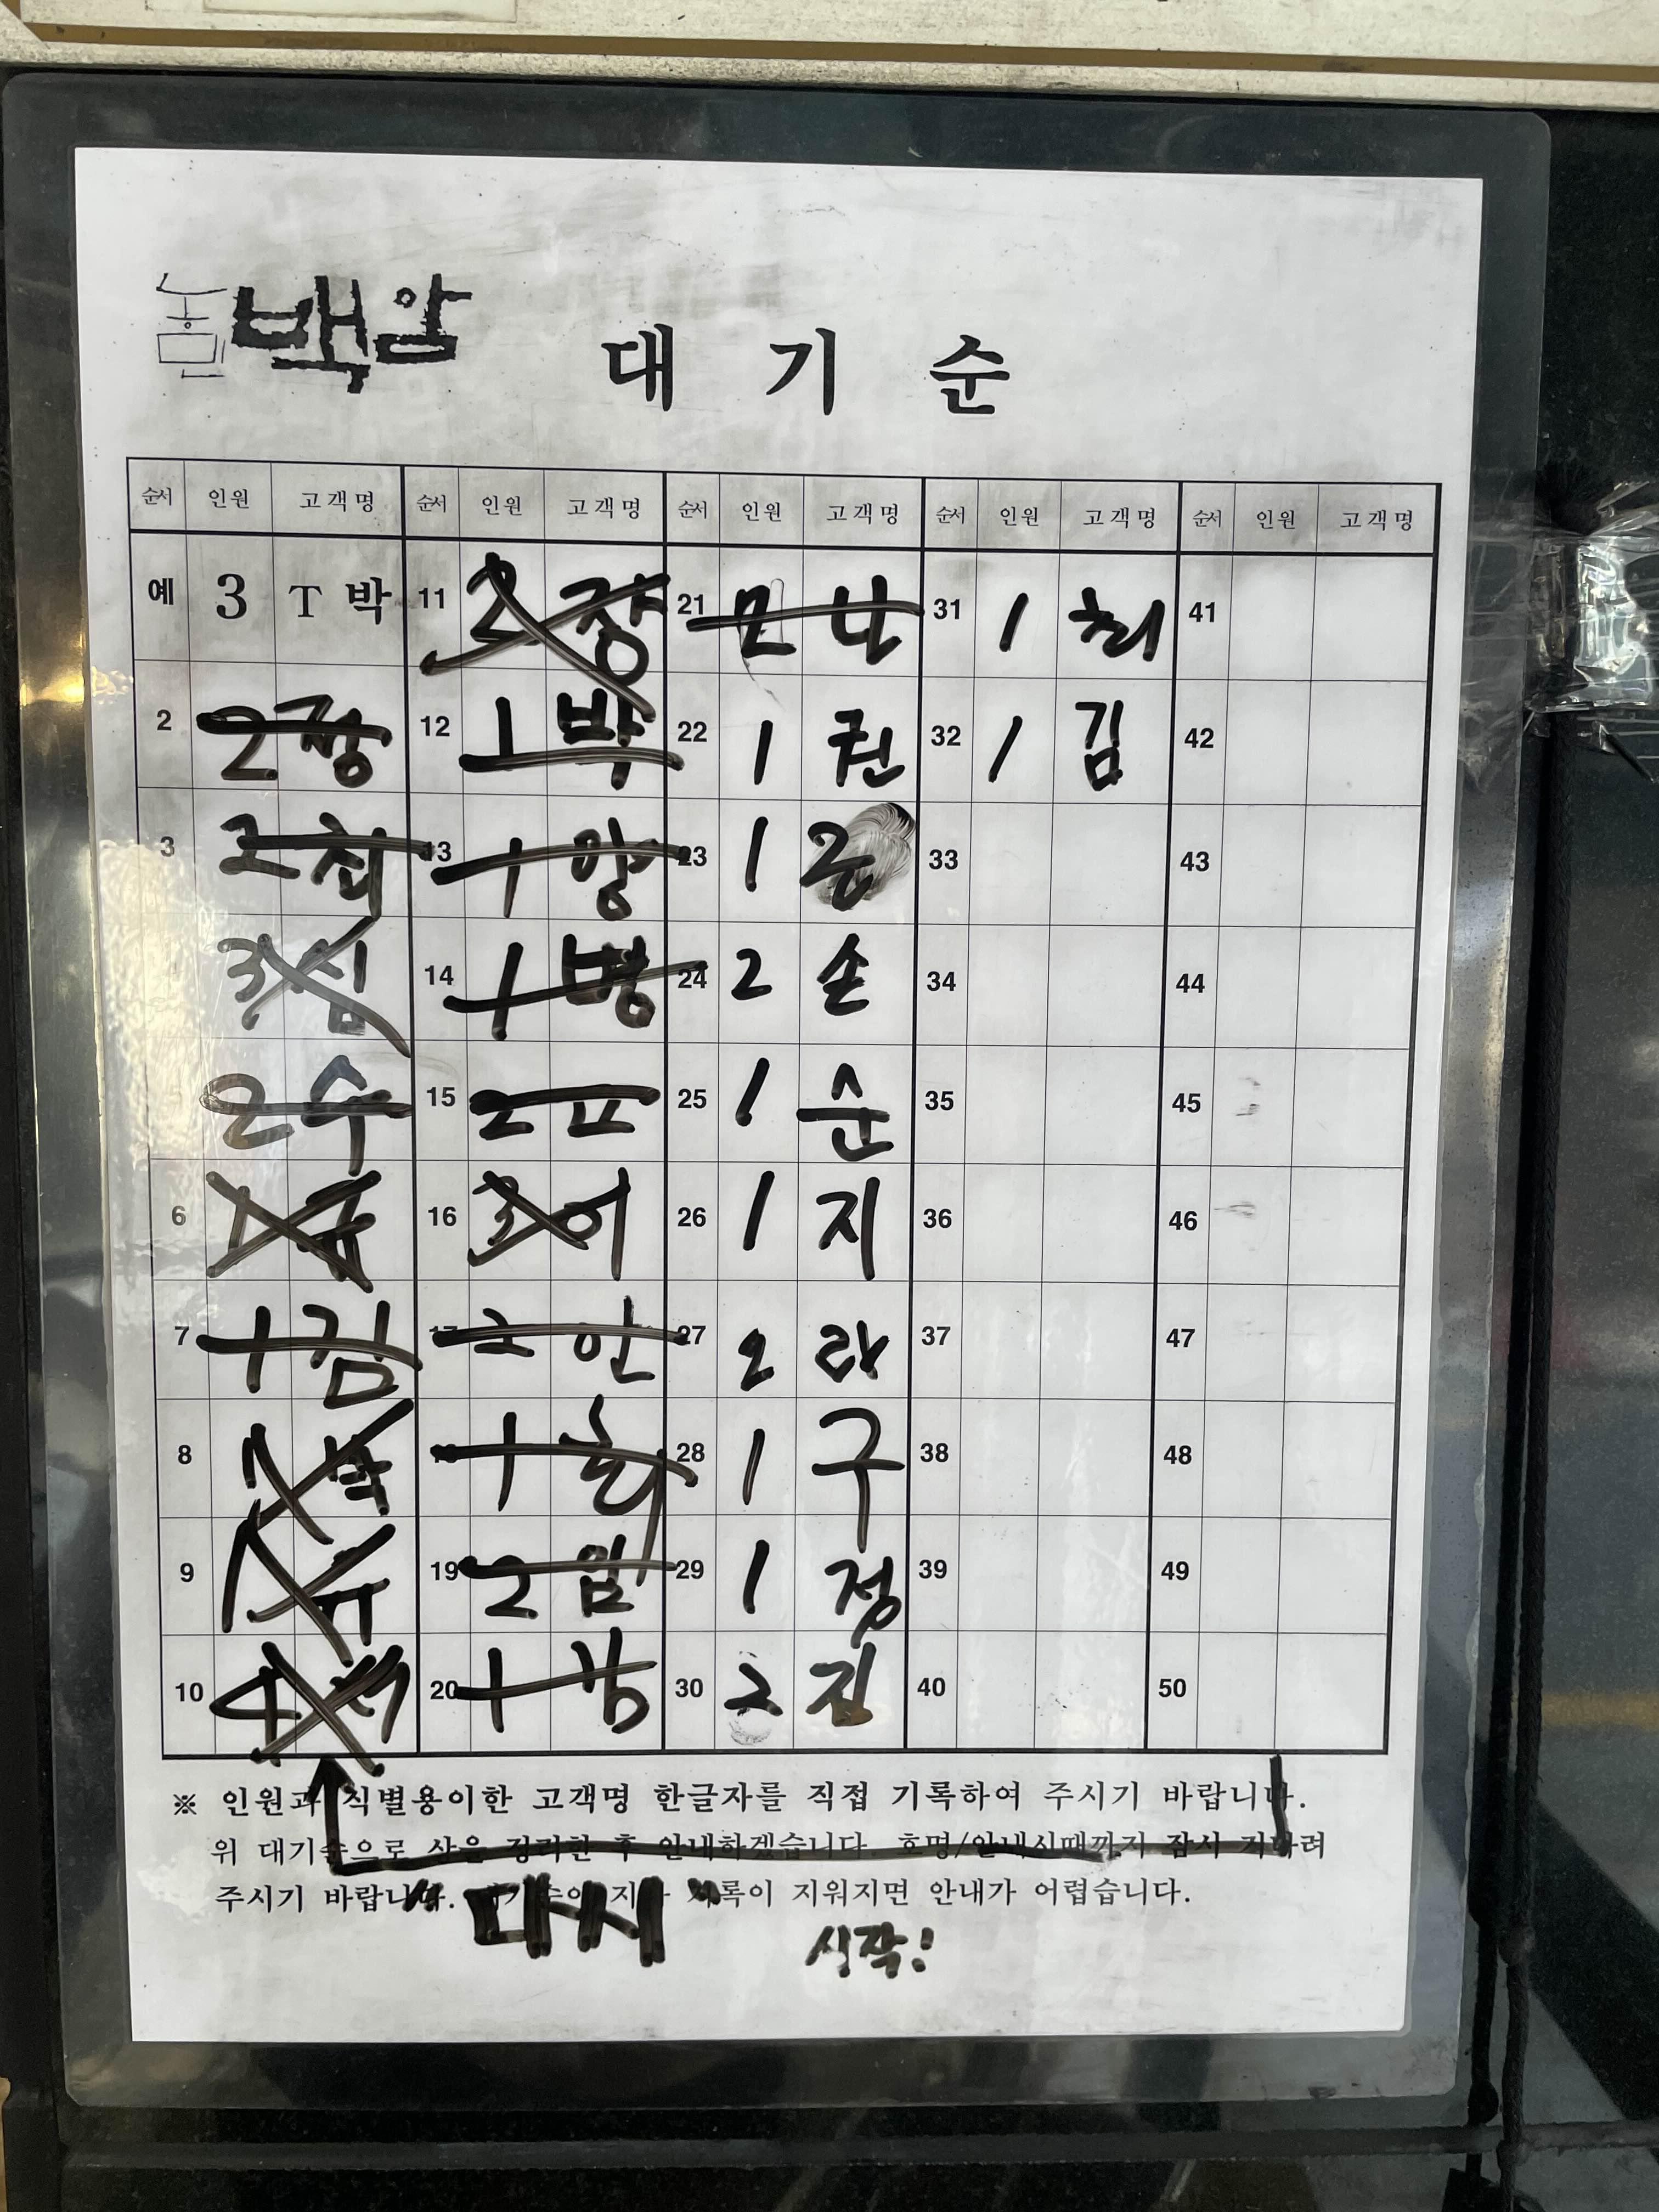 농민백암
대 기 순
순서 인원 고객명 순서 인원 고객명 순서 인원 고객명 순서 인원 고객명 순서 인원 고객명
예 3 T 박 11 2 장 21 2 나 31 1 최 41
2 2 정 12 1 박 22 1 권 32 1 김 42
3 2 최 13 1 양 23 1 33 43
3 심 14 1 병 24 2 손 34 44
2 수 15 2 요 25 1 순 35 45
6 1 유 16 3 어 26 1 지 36 46
7 1 김 17 2 안 27 2 라 37 47
8 1 박 1 최 28 1 구 38 48
9 1 유 19 2 임 29 1 정 39 49
10 4 20 1 방 30 2 진 40 50
※ 인원과 식별용이한 고객명 한글자를 직접 기록하여 주시기 바랍니다.
위 대기순으로 상을 정리한 후 안내하겠습니다. 호명/안내시때까지 잠시 기다려
주시기 바랍니다. 기록이 지워지면 안내가 어렵습니다.
"다시"
시작!